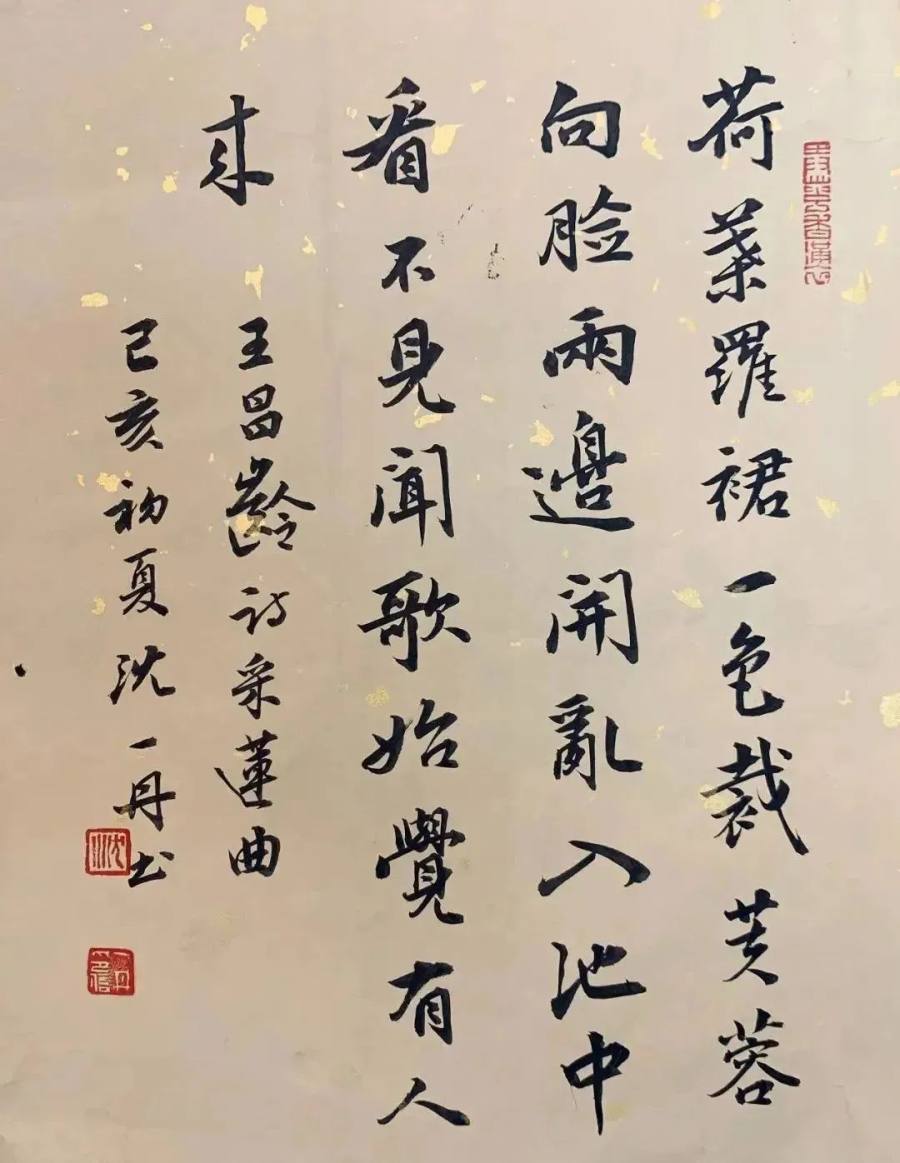 荷葉羅裙一色裁芙蓉
向臉兩邊開亂入池中
看不見聞歌始覺有人
来
王昌齡詩采蓮曲
己亥初夏沈一丹书
沈